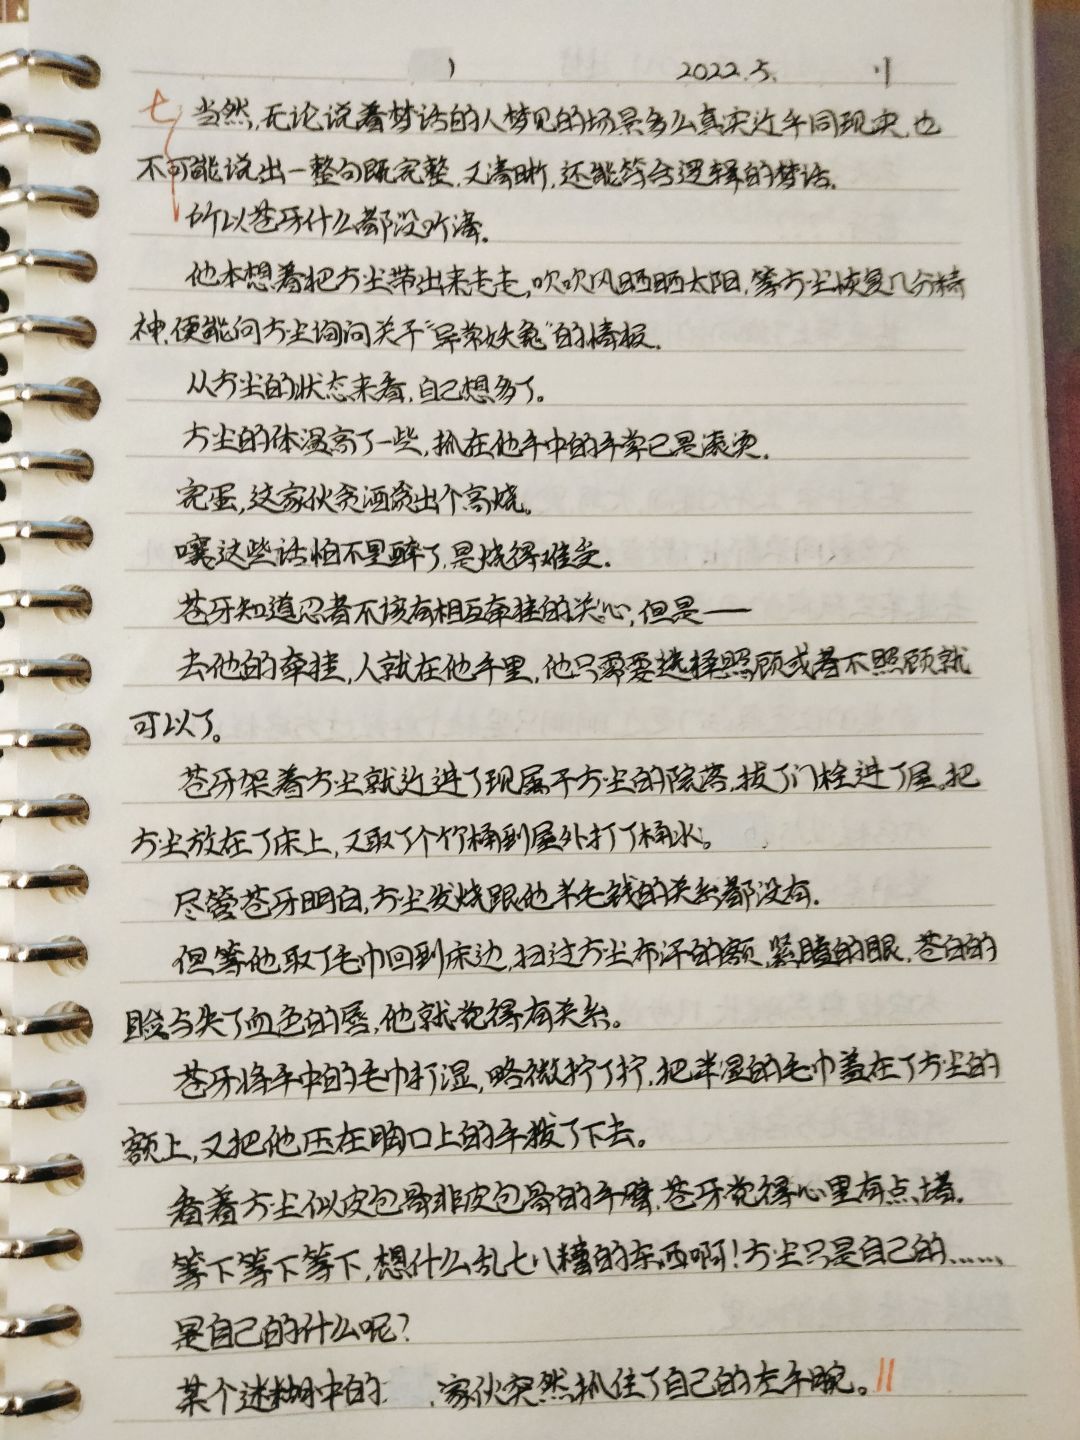 2022.5.
七 当然,无论说着梦话的人梦见的场景多么真实近乎同现实,也
不可能说出一整句既完整,又清晰,还能符合逻辑的梦话.
所以苍牙什么都没听清.
他本想着把方尘带出来走走,吹吹风晒晒太阳,等方尘恢复几分精
神,便能向方尘询问关于“异常妖兔”的情报.
从方尘的状态来看,自己想多了。
方尘的体温高了一些,抓在他手中的手掌已是滚烫.
完蛋,这家伙贪酒贪出个高烧。
嚷这些话怕不是醉了,是烧得难受.
苍牙知道忍者不该有相互牵挂的关心,但是——
去他的牵挂,人就在他手里,他只需要选择照顾或者不照顾就
可以了。
苍牙架着方尘就近进了现属于方尘的院落,拔了门栓进了屋,把
方尘放在了床上,又取了个竹桶到屋外打了桶水。
尽管苍牙明白,方尘发烧跟他半毛钱的关系都没有.
但等他取了毛巾回到床边,扫过方尘布汗的额,紧瞌的眼,苍白的
脸与失了血色的唇,他就觉得有关系。
苍牙将手中的毛巾打湿,略微拧了拧,把半湿的毛巾盖在了方尘的
额上,又把他压在胸口上的手拨了下去。
看着方尘似皮包骨非皮包骨的手臂,苍牙觉得心里有点堵.
等下等下等下,想什么乱七八糟的东西啊!方尘只是自己的……
是自己的什么呢?
某个迷糊中的 家伙突然抓住了自己的左手腕。